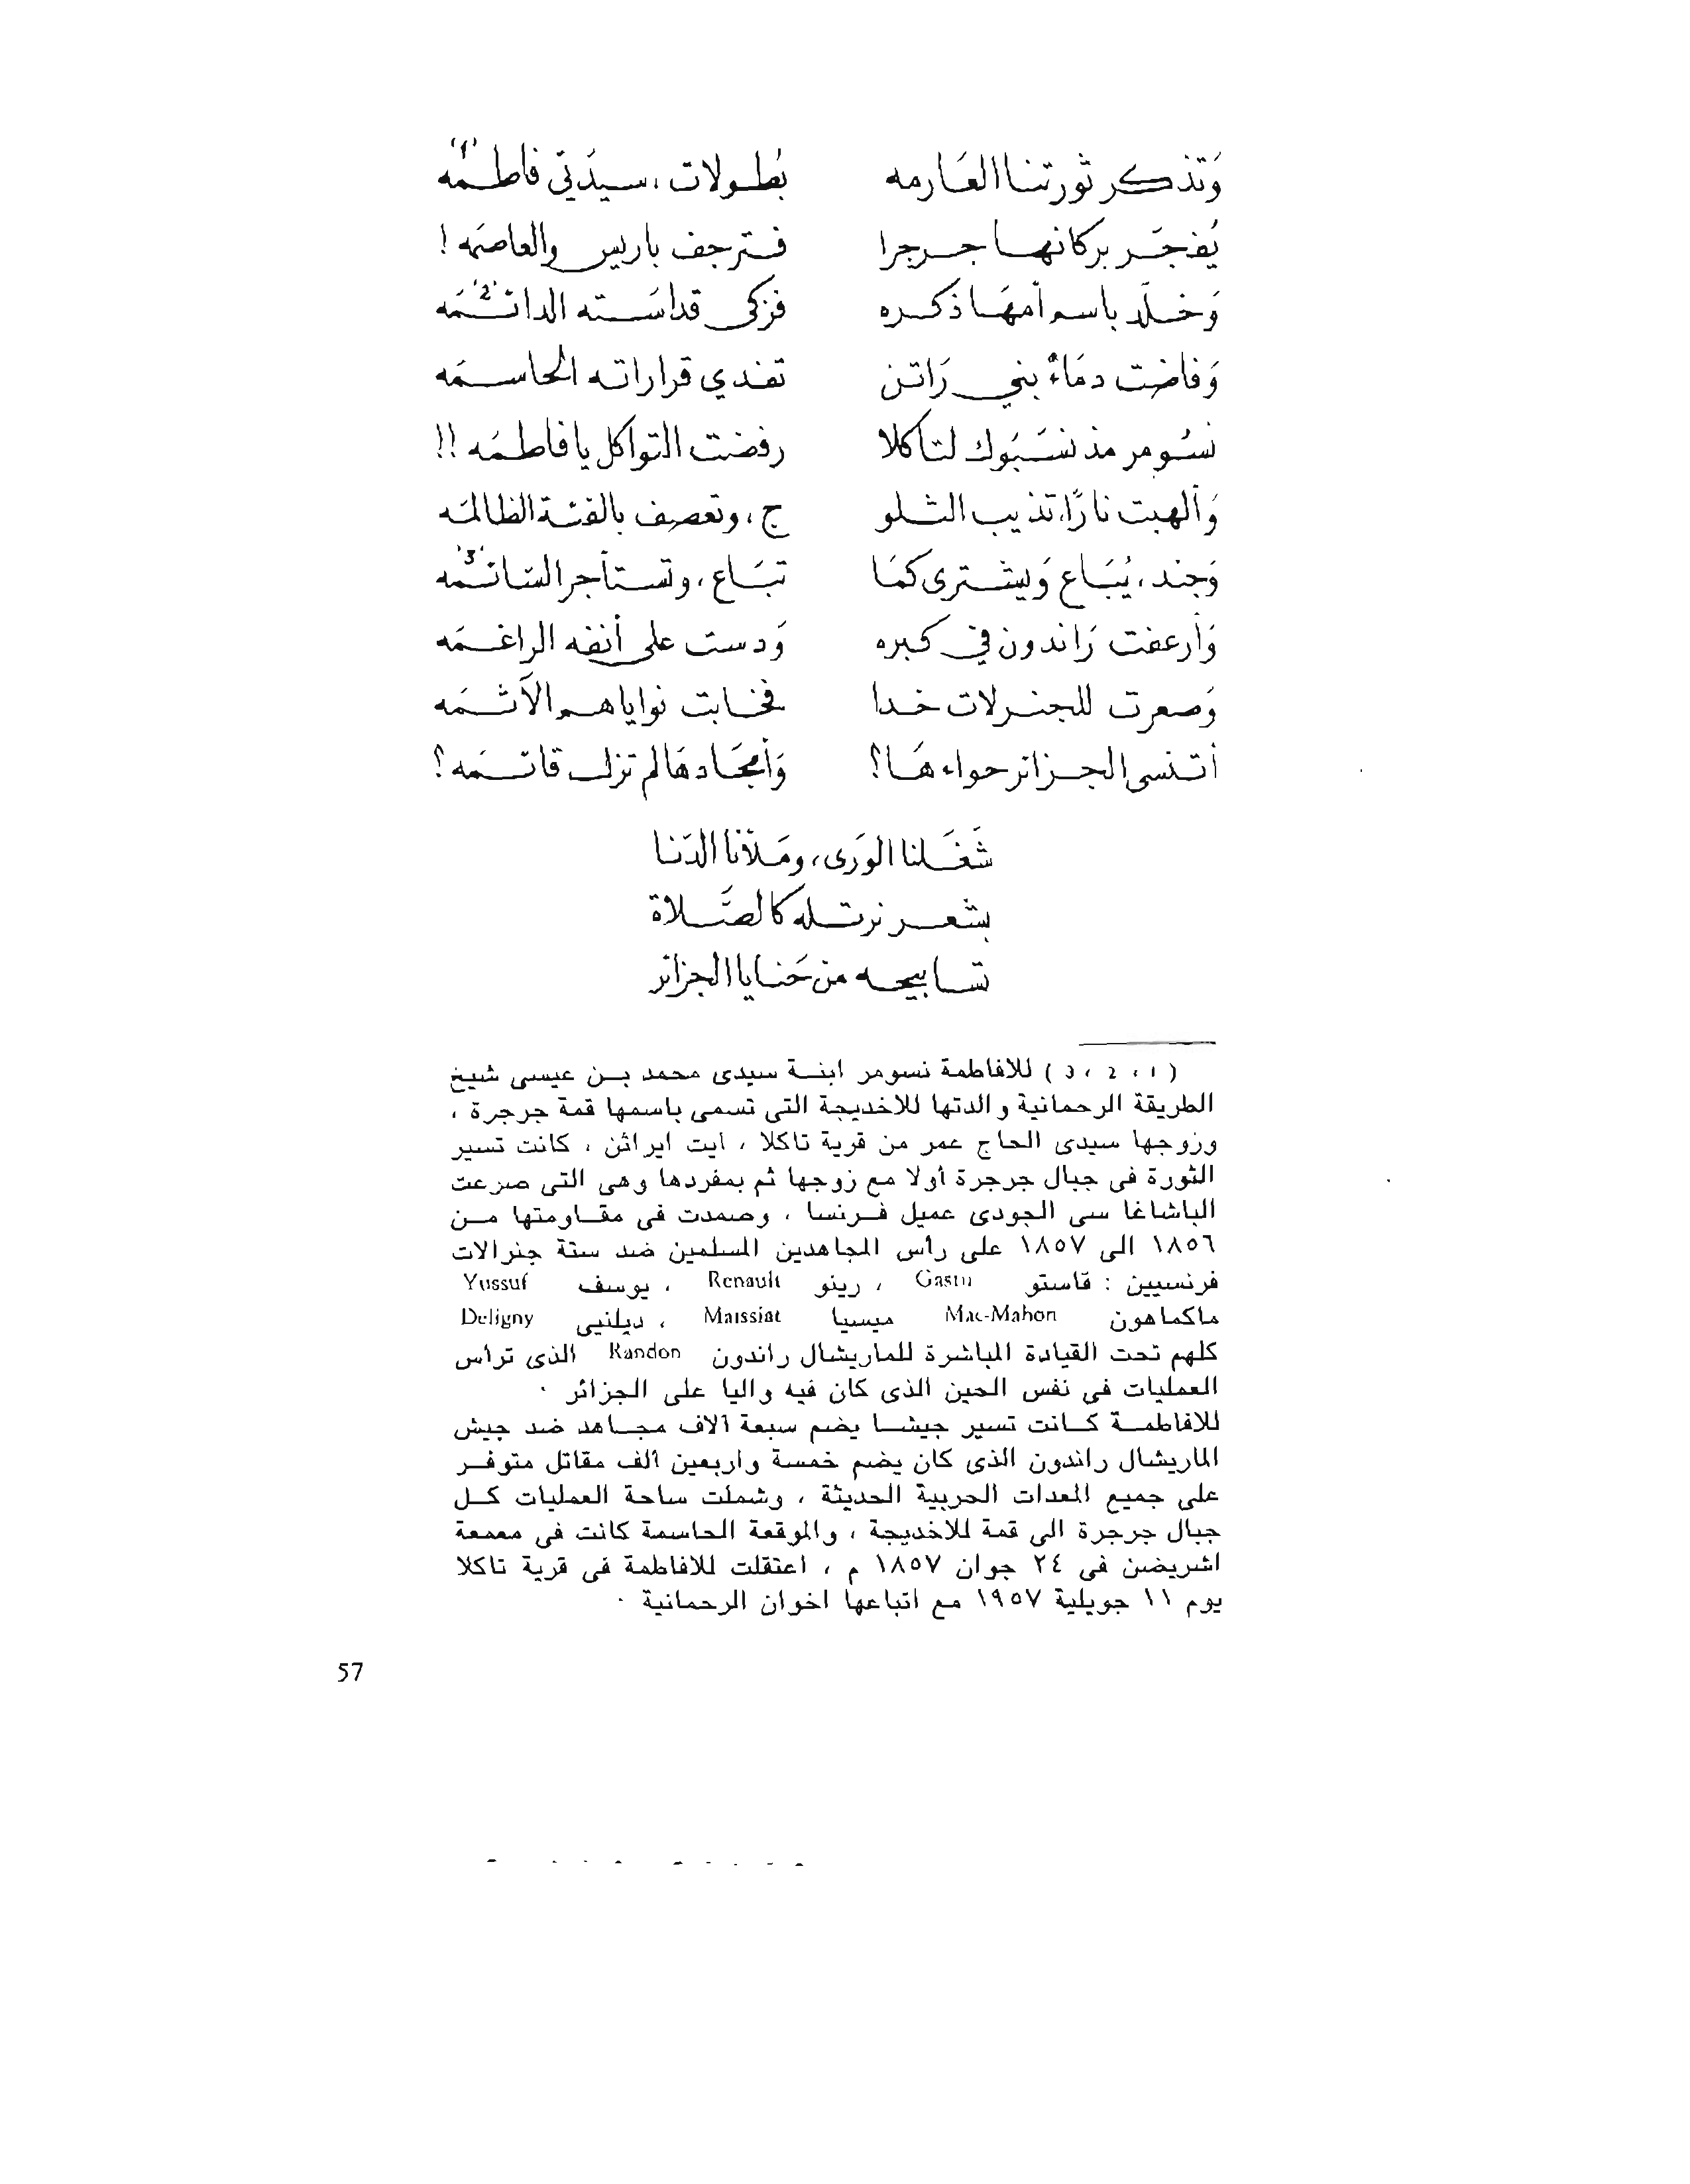 وَتذكر ثورتنا العَارمه بُطولات، سيدَتي فاطمَه (1)
يُفجَر بركانها جرجرا فترجف باريس والعاصمَه !
وَخلّد باسم أمهَا ذكره فزكى قداسَته الدائمَه (2)
وَفاضت دمَاءُ بني رَاتن تفدي قراراته الحاسمَه
نسُومر مذ نسَبُوك لتاكلا رفضت التواكل يا فاطمَه !!
وَألهبت نارًا، تذيب الثلو ج، وتعصف بالفئة الظالمَه
وَجند، يُبَاع وَيشترى كمَا تبَاع، وتستأجر السَائمَه (3)
وَأرعفت رَاندون في كبره وَدست على أنفه الراغمَه
وَصعرت للجنرلات خدا فخابت نواياهم الآثمَه
أتنسى الجزائر حواءهَا؟ وَأمجَادهَا لم تزل قائمَه؟
شَغَلنا الورَى، ومَلأنا الدَنا
بشعر نرتله كالصَّلاة
تسابيحه من حَنايا الجزائر
( 1 ، 2 ، 3 ) للافاطمة نسومر ابنة سيدى محمد بن عيسى شيخ
الطريقة الرحمانية والدتها للاخديجة التى تسمى باسمها قمة جرجرة ،
وزوجها سيدى الحاج عمر من قرية تاكلا ، ايت ايراثن ، كانت تسير
الثورة فى جبال جرجرة أولا مع زوجها ثم بمفردها وهى التى صرعت
الباشاغا سى الجودى عميل فرنسا ، وصمدت فى مقاومتها من
١٨٥٦ الى ١٨٥٧ على رأس المجاهدين المسلمين ضد ستة جنرالات
فرنسيين : قاستو Gastu ، رينو Renault ، يوسف Yussuf
ماكماهون Mac-Mahon ميسيا Maissiat ، ديلنيى Deligny
كلهم تحت القيادة المباشرة للماريشال راندون Randon الذى ترأس
العمليات في نفس الحين الذى كان فيه واليا على الجزائر .
للافاطمة كانت تسير جيشا يضم سبعة آلاف مجاهد ضد جيش
الماريشال راندون الذى كان يضم خمسة واربعين ألف مقاتل متوفر
على جميع المعدات الحربية الحديثة ، وشملت ساحة العمليات كل
جبال جرجرة الى قمة للاخديجة ، والموقعة الحاسمة كانت فى معمعة
اشريضن فى ٢٤ جوان ١٨٥٧ م ، اعتقلت للافاطمة فى قرية تاكلا
يوم ١١ جويلية ١٩٥٧ مع اتباعها اخوان الرحمانية .
57